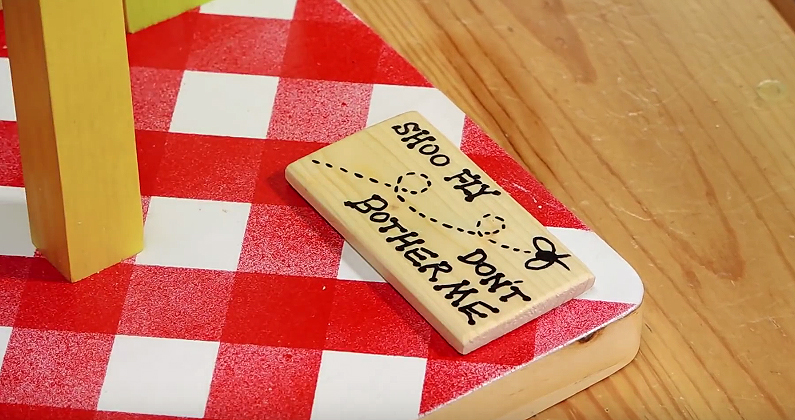 SHOO FLY
DON'T
BOTHER ME